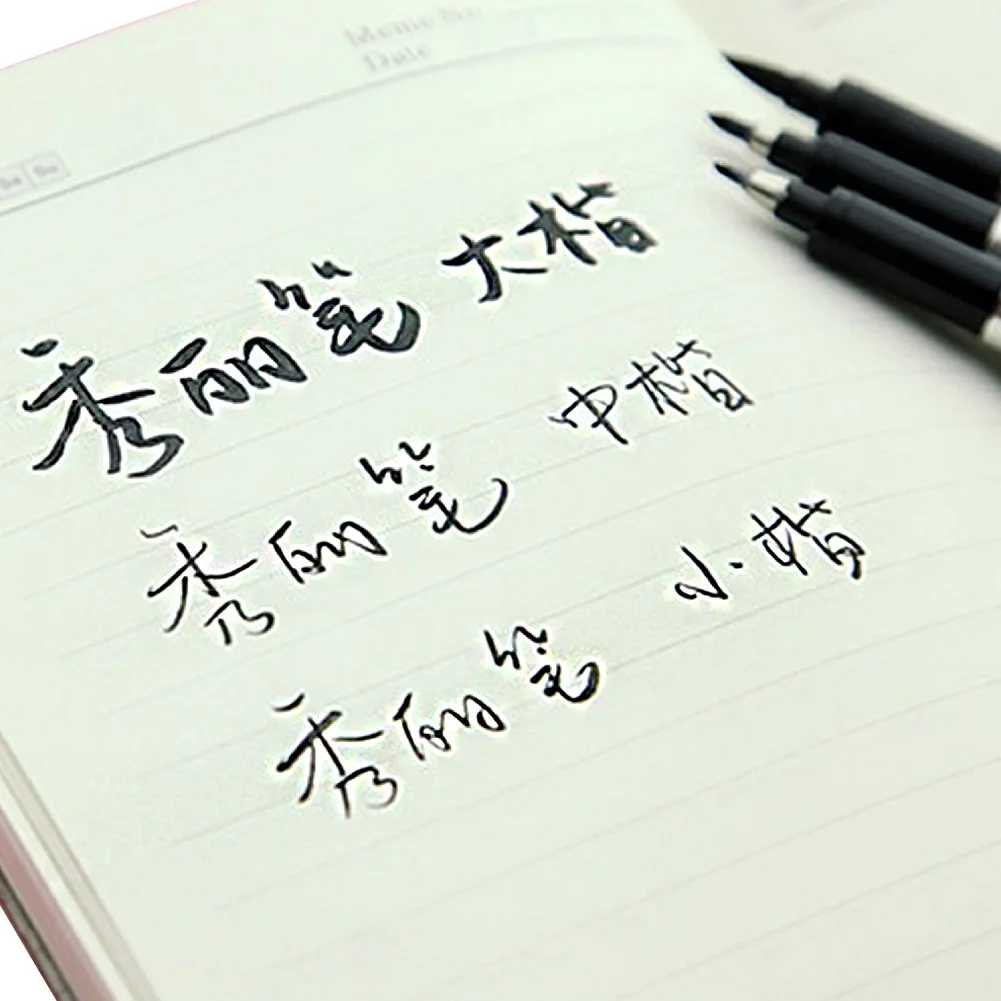 Memo No
Date
秀丽笔 大楷
秀丽笔 中楷
秀丽笔 小楷